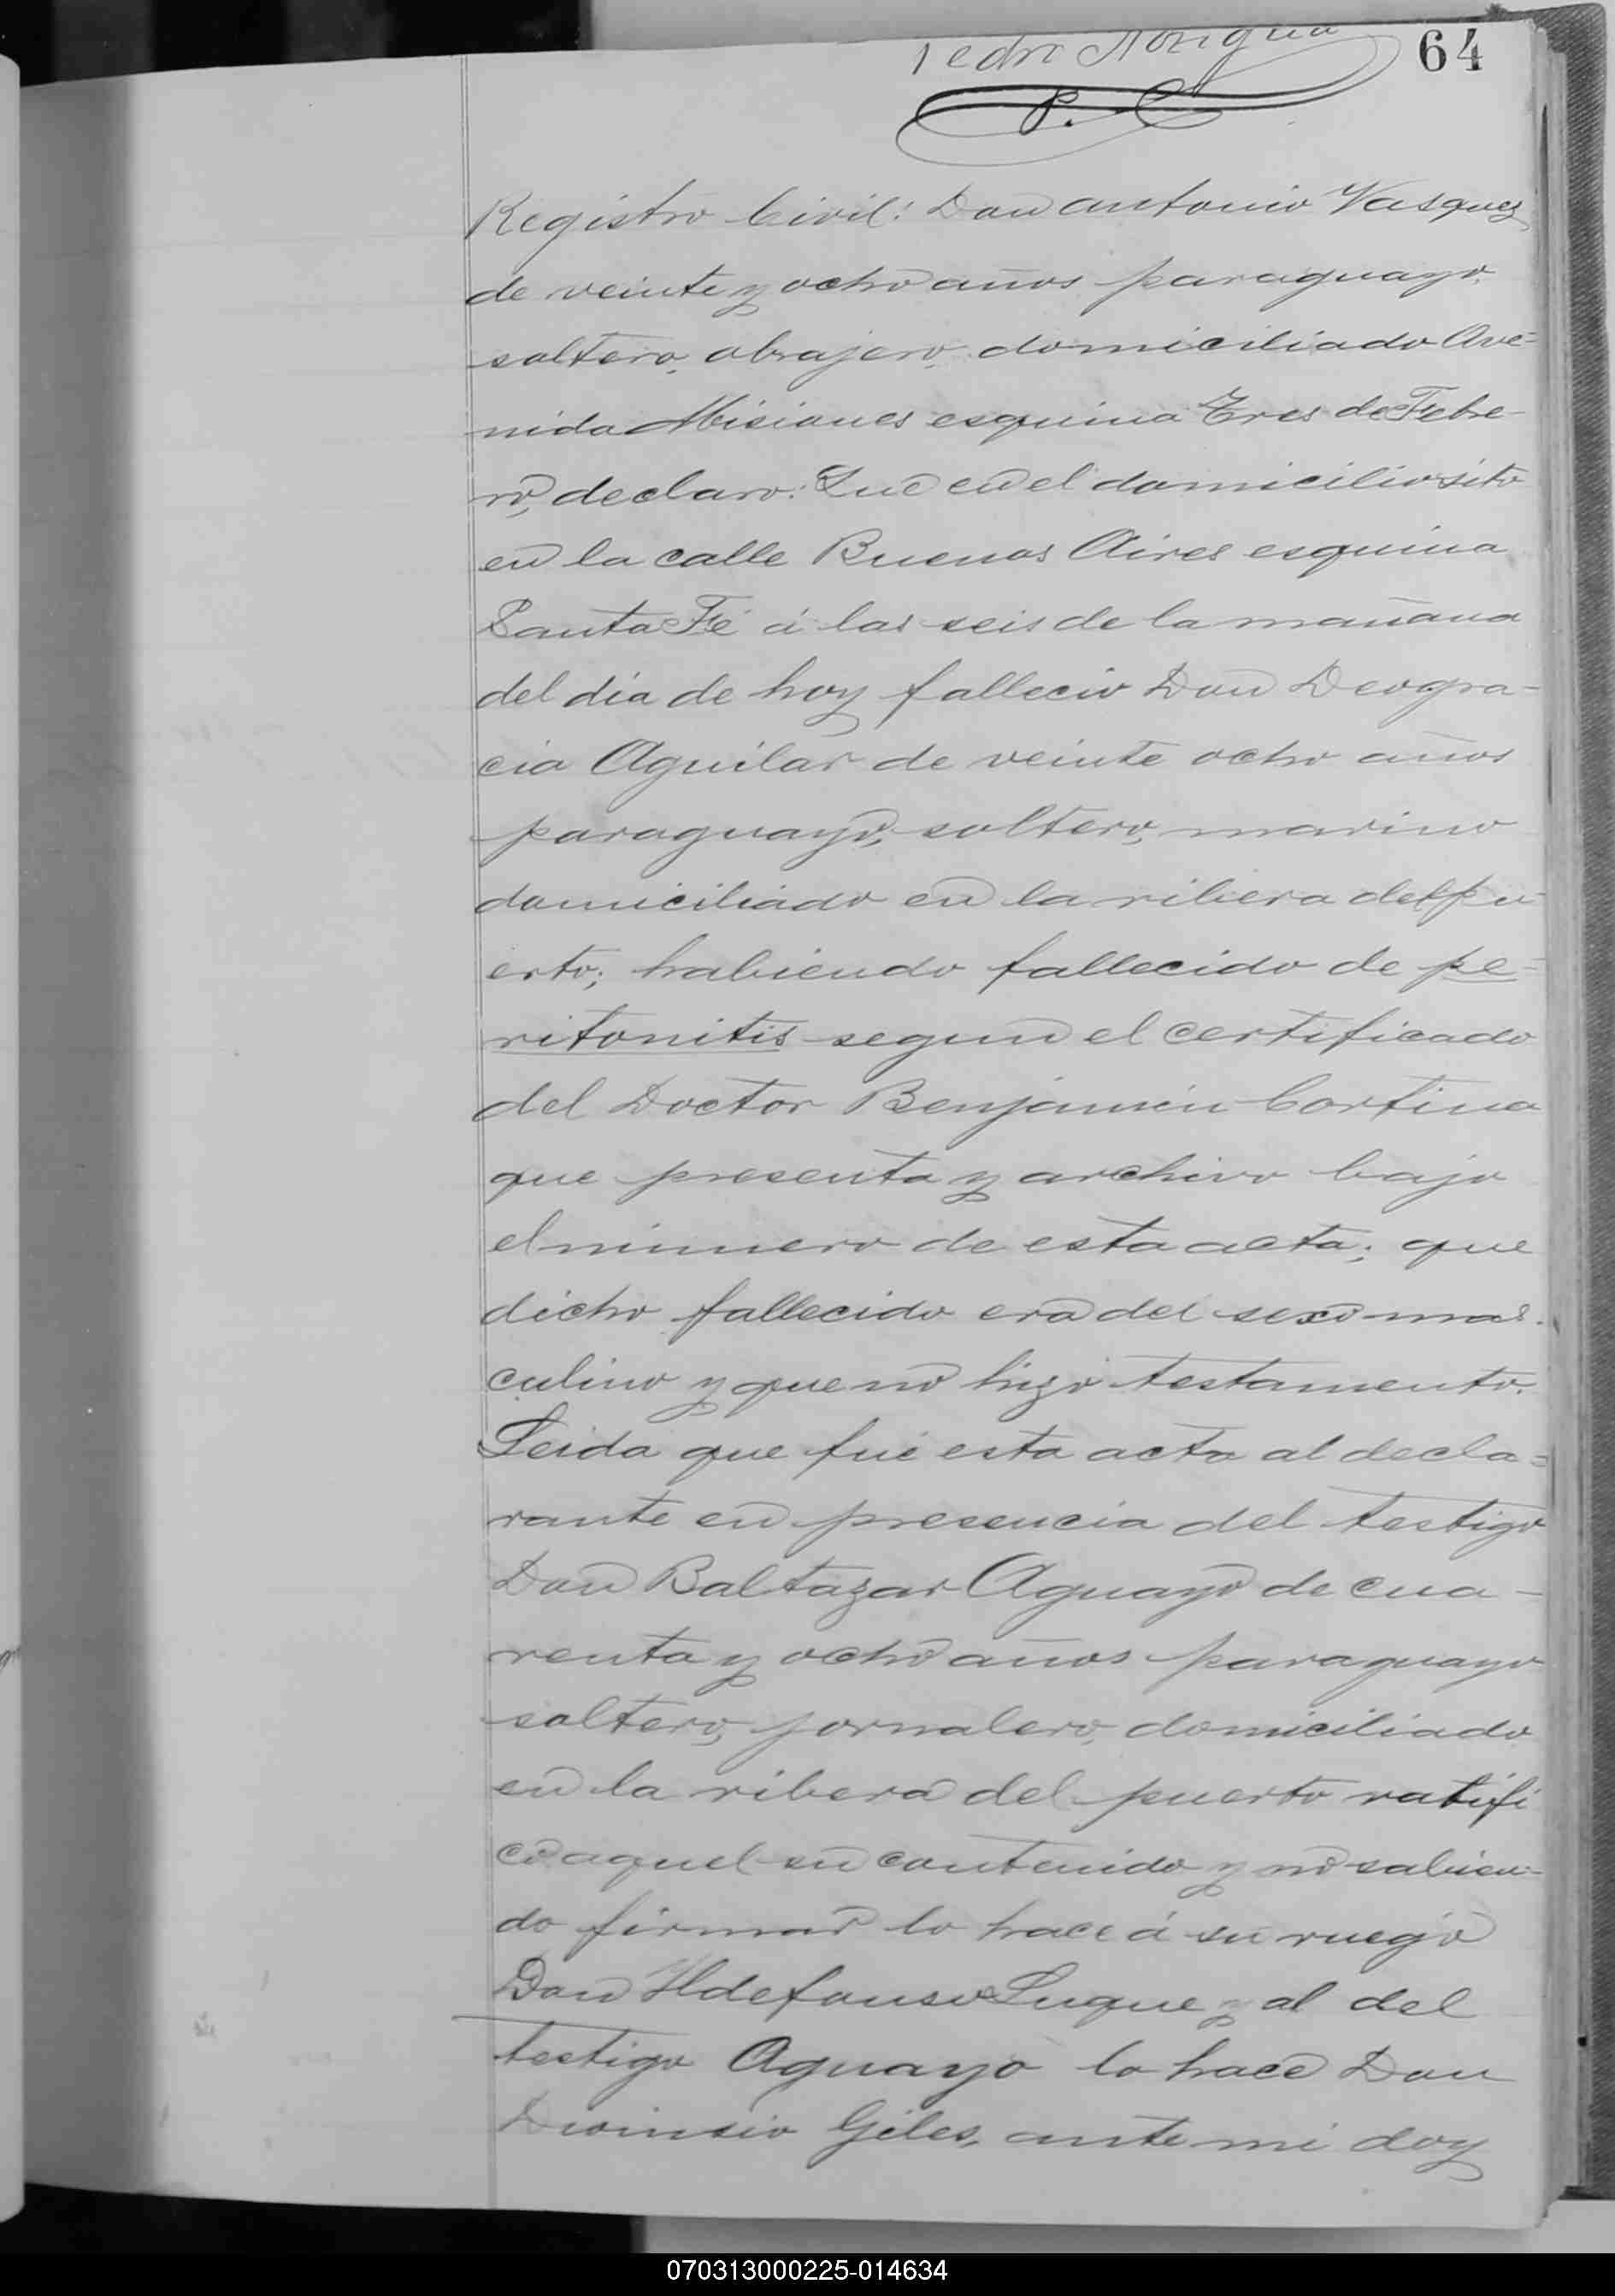 64
Pedro Noriega
P. C
Registro Civil: Don Antonio Vasquez
de veinte y ocho años paraguayo,
soltero, obrajero, domiciliado Ave-
nida Misiones esquina Tres de Febre
ro, declaro: Que en el domicilio sito
en la calle Buenos Aires esquina
Santa Fé á las seis de la mañana
del dia de hoy fallecio Don Deogra-
cia Aguilar de veinte ocho años
paraguayo, soltero, marino
domiciliado en la ribera del pu-
erto; habiendo fallecido de pe-
ritonitis segun el certificado
del Doctor Benjamin Cortina
que presenta y archivo bajo
el número de esta acta; que
dicho fallecido era del sexo mas-
culino y que no hizo testamento.
Leida que fué esta acta al decla-
rante en presencia del testigo
Don Baltazar Aguayo de cua-
renta y ocho años paraguayo
soltero, jornalero, domiciliado
en la ribera del puerto ratifi
có aquel su contenido y no sabien-
do firmar lo hace á su ruego
Don Ildefonso Luque y al del
testigo Aguayo lo hace Don
Dionisio Giles, ante mi doy
070313000225-014634